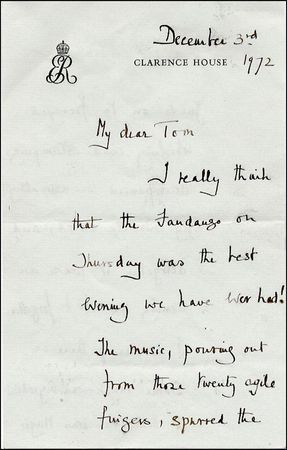 December 3rd
CLARENCE HOUSE
1972
My dear Tom
I really think
that the Fandango on
Thursday was the best
evening we have ever had!
The music, pouring out
from those twenty agile
fingers, spurred the